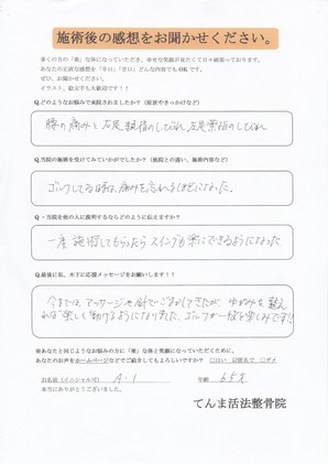 施術後の感想をお聞かせください。
多くの方の「楽」な体になっていただき、幸せな笑顔が見たくて日々頑張っております。
あなたの正直な感想を「辛口」「甘口」どんな内容でもOKです。
ぜひ、お聞かせください。
イラスト、絵文字も大歓迎です！！
Q.どのようなお悩みで来院されましたか？（症状やきっかけなど）
腰の痛みと右足親指のしびれ 左足薬指のしびれ
Q.当院の施術を受けてみていかがでしたか？（他院との違い、施術内容など）
ゴルフしてる時は痛みを忘れるほどになった。
Q・当院を他の人に説明するならどのように伝えますか？
一度施術してもらったらスイングも楽にできるようになった
Q.最後に私、木下に応援メッセージをお願いします！！
今までは、マッサージや針でごまかしてきたが、ゆがみを整え
れば楽しく動けるようになりました。ゴルフが一段と楽しみです!!
※あなたと同じようなお悩みの方に「楽」な体と笑顔になっていただくために、
あなたのお声をホームページなどでご紹介してもよろしいですか？ □はい ☑匿名で □ダメ
お名前（イニシャル可） A・I 年齢 65才
本日はありがとうございました。
てんま活法整骨院